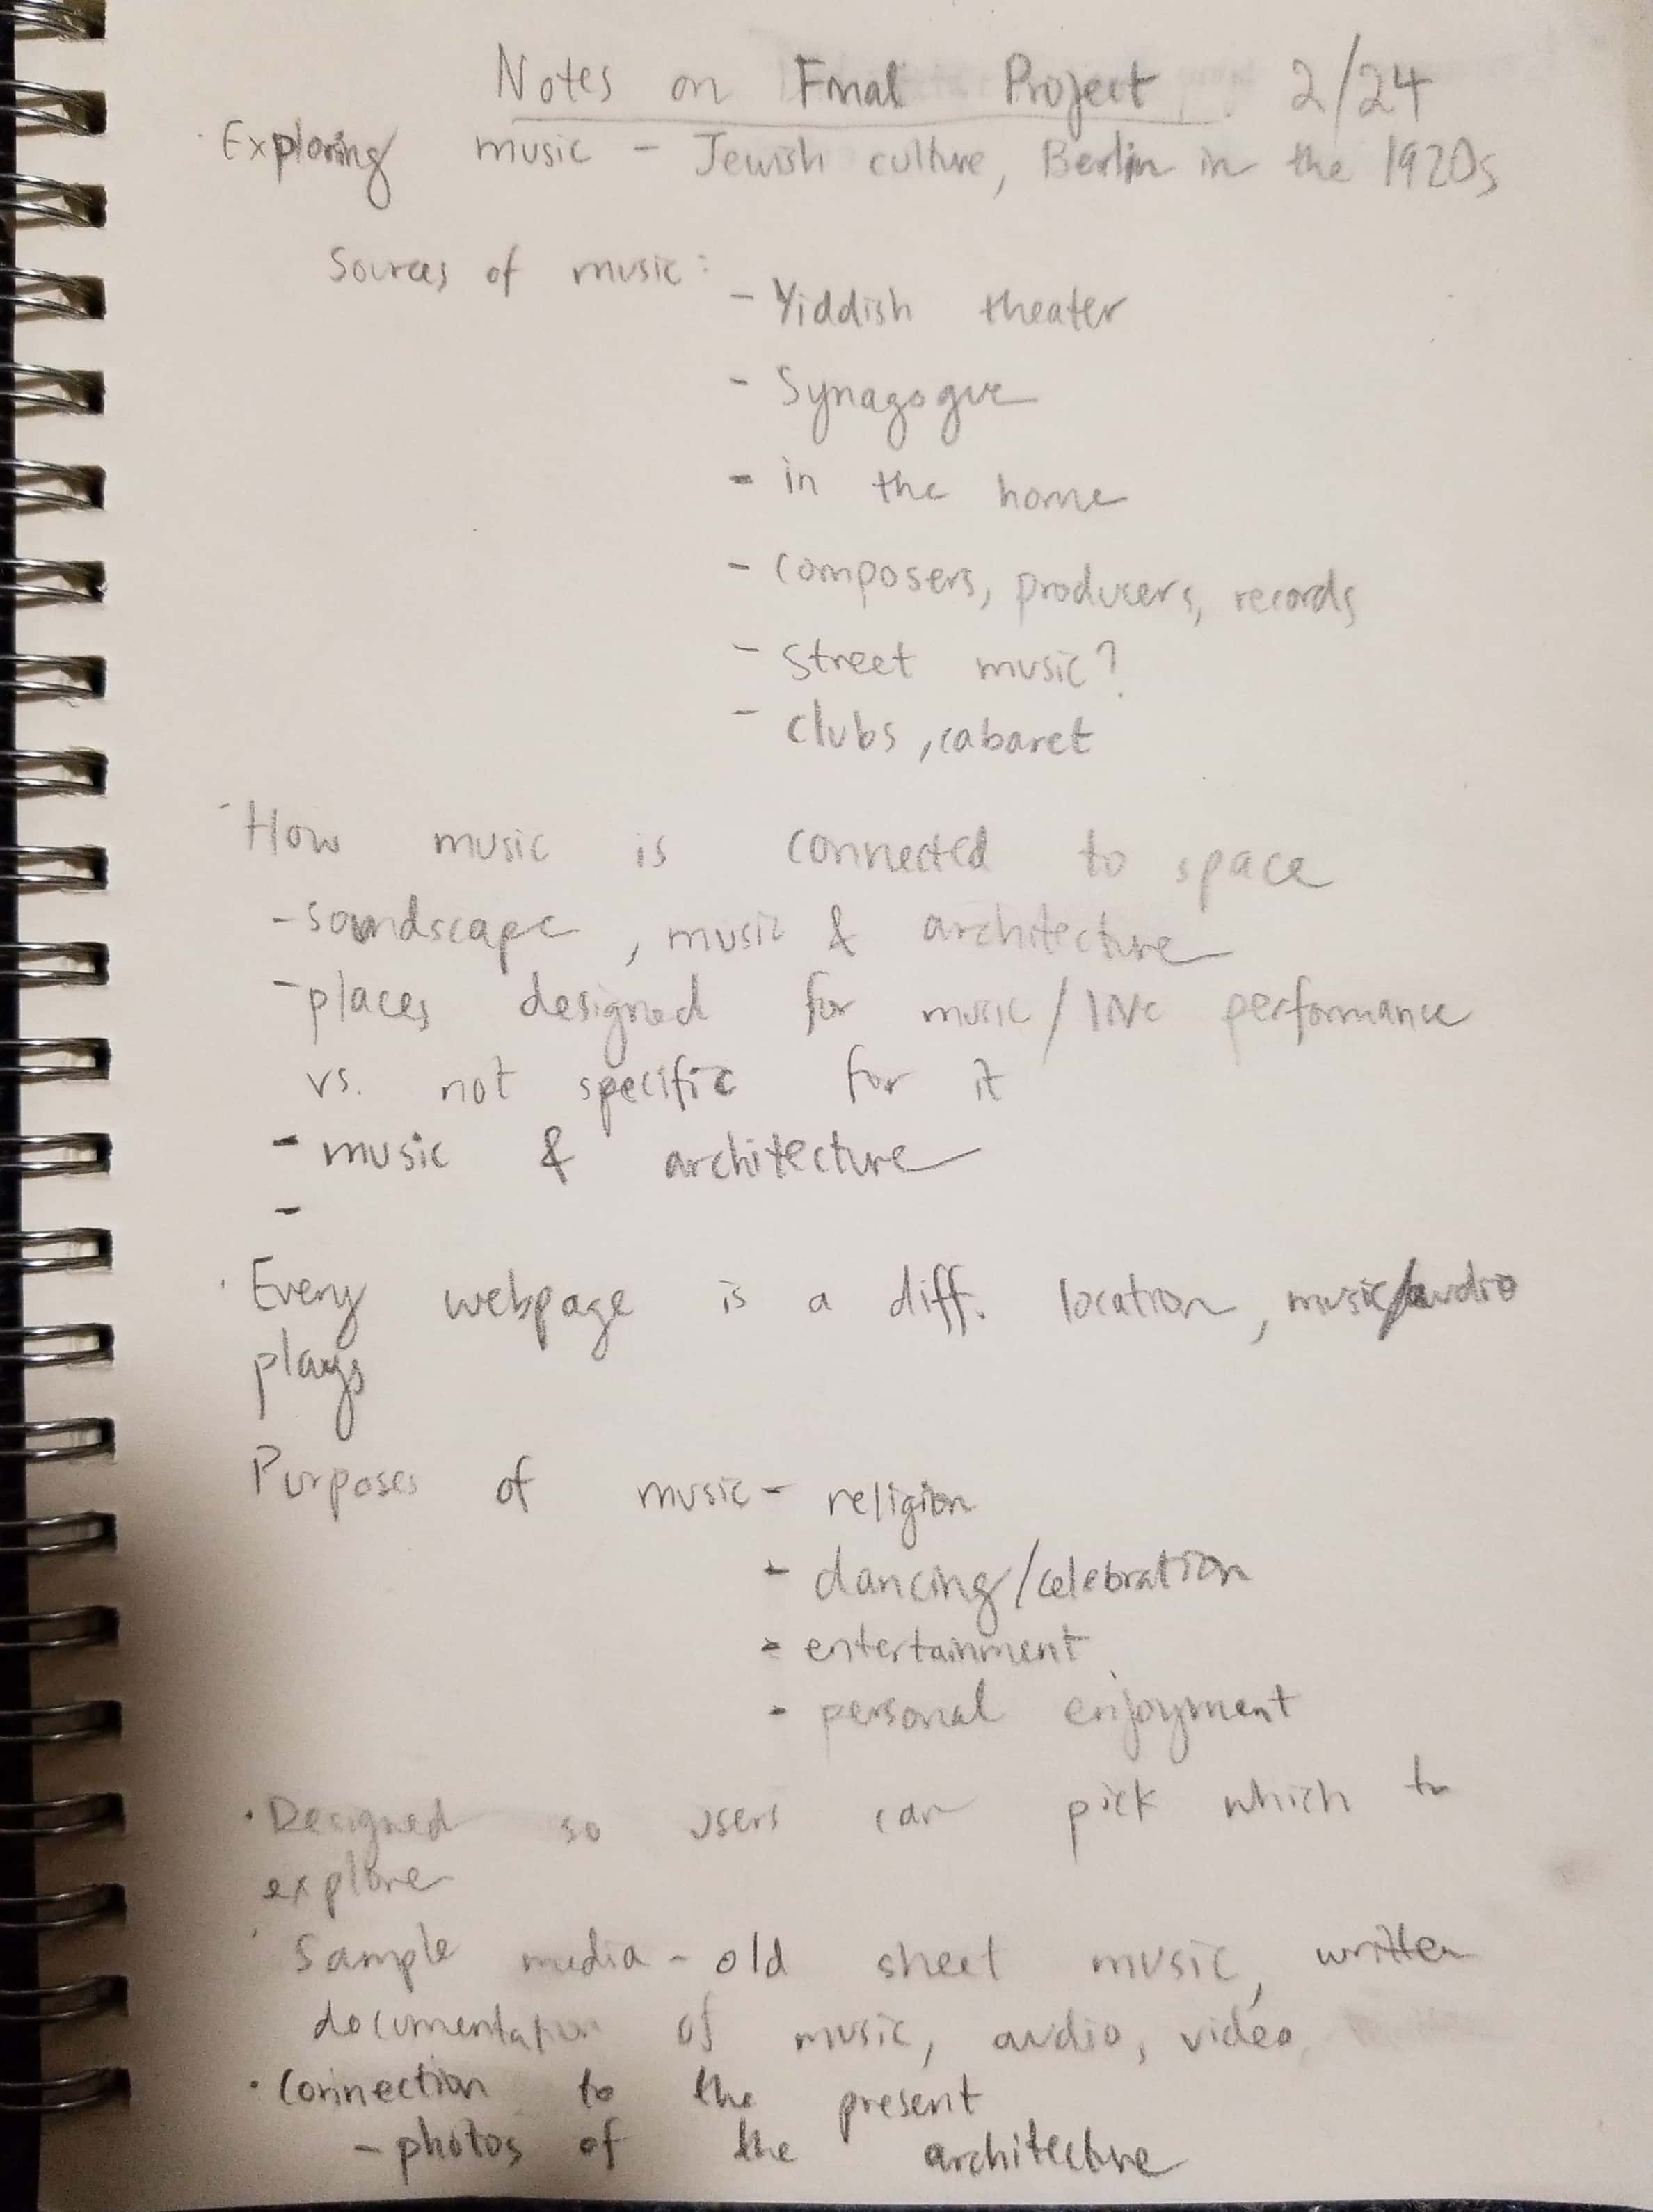 Notes on Final Project 2/24
· Exploring music - Jewish culture, Berlin in the 1920s
Sources of music:
- Yiddish theater
- Synagogue
- in the home
- composers, producers, records
- street music?
- clubs, cabaret
· How music is connected to space
- soundscape, music & architecture
- places designed for music/live performance
vs. not specific for it
- music & architecture
-
· Every webpage is a diff. location, music/audio
plays
Purposes of music - religion
- dancing/celebration
- entertainment
- personal enjoyment
· Designed so users can pick which to
explore
· Sample media - old sheet music, written
documentation of music, audio, video,
· Connection to the present
- photos of the architecture